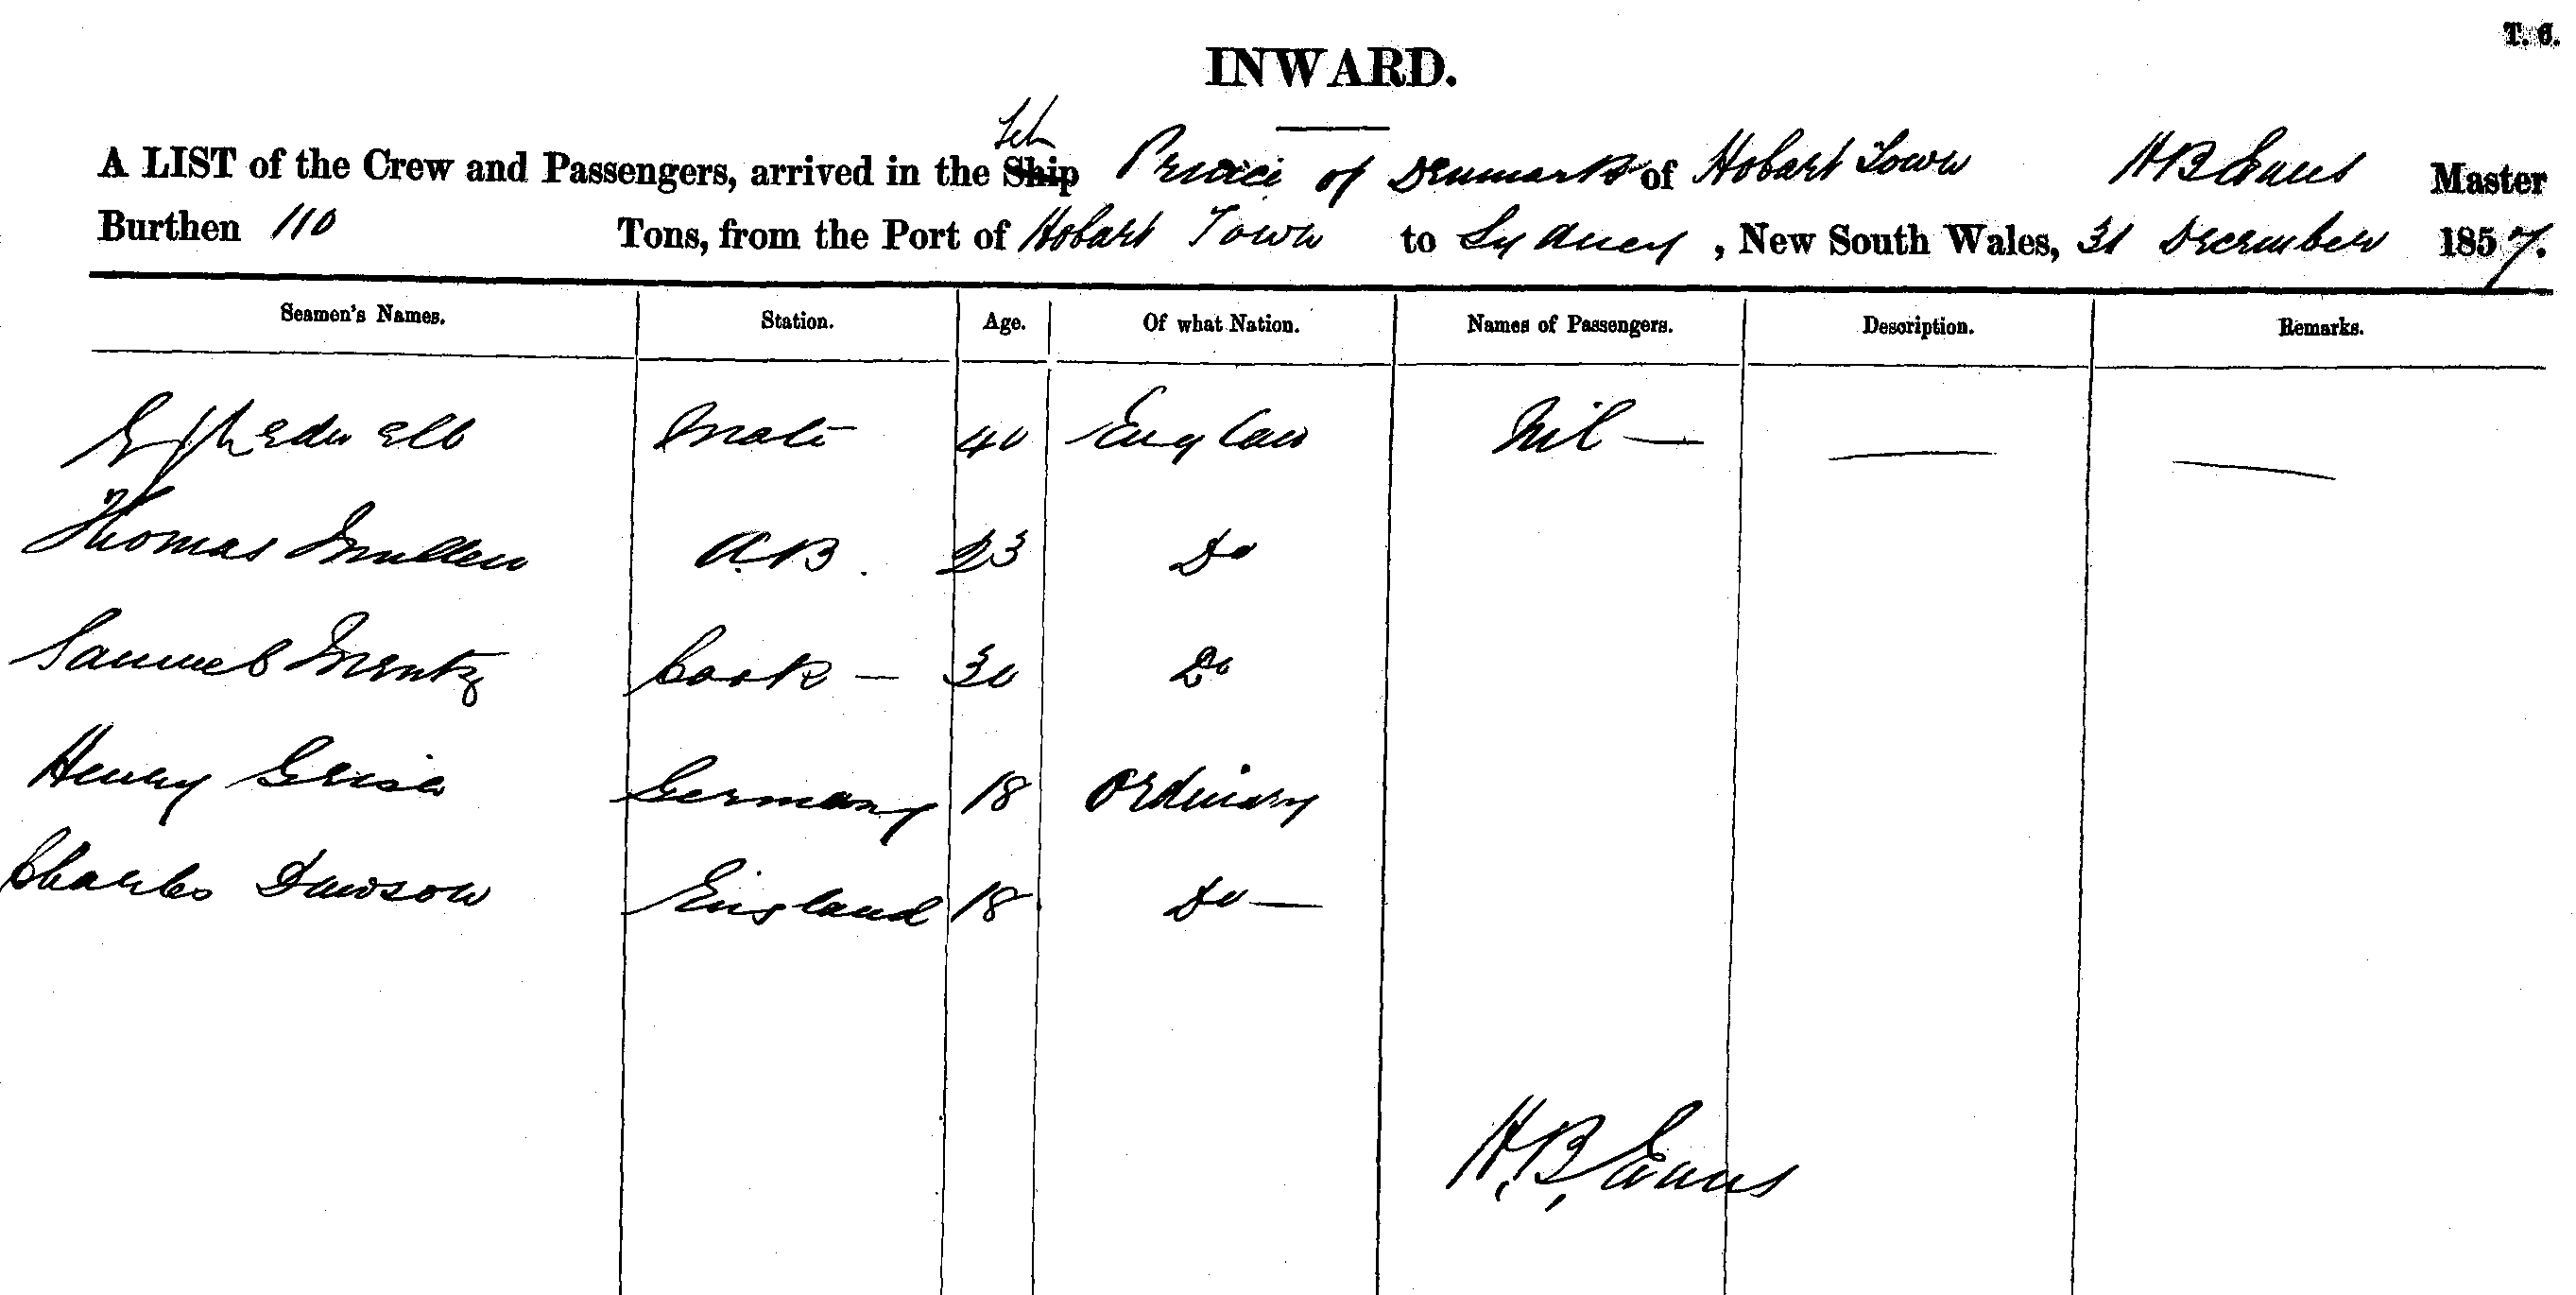 T. C.
INWARD.
Sch
A LIST of the Crew and Passengers, arrived in the Ship Prince of Denmark of Hobart Town H B Evans Master
Burthen 110 Tons, from the Port of Hobart Town to Sydney, New South Wales, 31 December 1857.
Seamen's Names. Station. Age. Of what Nation. Names of Passengers. Description. Remarks.
Mate 40 England Nil —
Thomas Mullen A.B. 23 Do
Samuel Mentz Cook — 30 Do
Henry Germany 18 Ordinary
Charles Dawson England 18 Do —
H. B. Evans